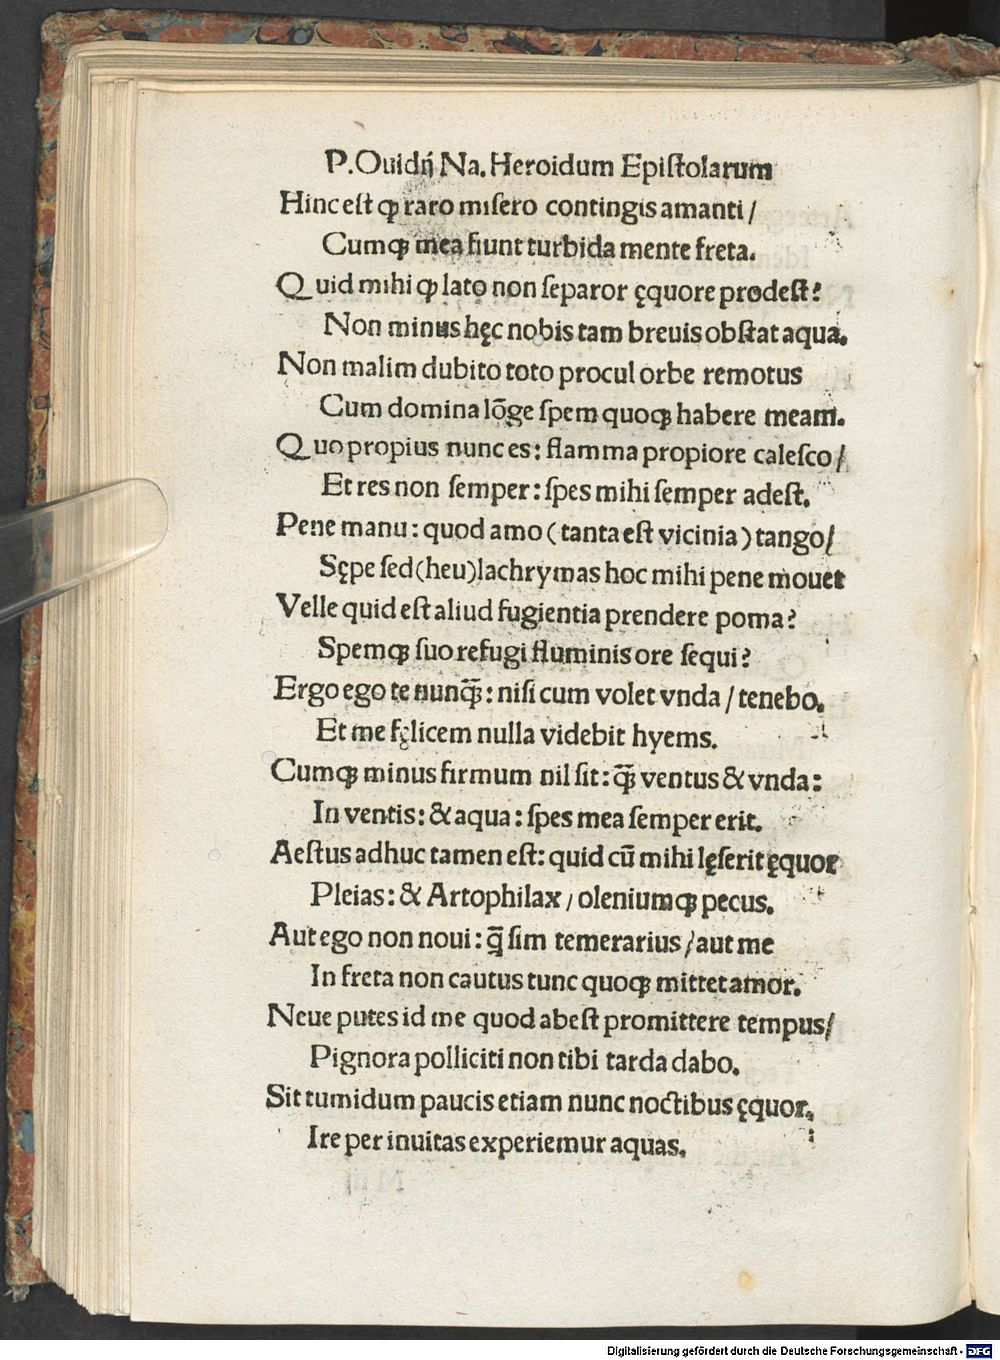 P. Ouidij Na. Heroidum Epistolarum
Hinc est ꝙ raro misero contingis amanti /
Cumqꝫ mea fiunt turbida mente freta.
Quid mihi ꝙ lato non separor ęquore prodest?
Non minus hęc nobis tam breuis obstat aqua.
Non malim dubito toto procul orbe remotus
Cum domina lōge spem quoqꝫ habere meam.
Quo propius nunc es: flamma propiore calesco /
Et res non semper: spes mihi semper adest.
Pene manu: quod amo (tanta est vicinia) tango /
Sępe sed (heu) lachrymas hoc mihi pene mouet
Velle quid est aliud fugientia prendere poma?
Spemqꝫ suo refugi fluminis ore sequi?
Ergo ego te nunq̄ꝫ: nisi cum volet vnda / tenebo.
Et me fęlicem nulla videbit hyems.
Cumqꝫ minus firmum nil sit: q̄ꝫ ventus & vnda:
In ventis: & aqua: spes mea semper erit.
Aestus adhuc tamen est: quid cū mihi lęserit ęquor
Pleias: & Artophilax / oleniumqꝫ pecus.
Aut ego non noui: q̄ sim temerarius / aut me
In freta non cautus tunc quoqꝫ mittet amor.
Neue putes id me quod abest promittere tempus /
Pignora polliciti non tibi tarda dabo.
Sit tumidum paucis etiam nunc noctibus ęquor.
Ire per inuitas experiemur aquas.
Digitalisierung gefördert durch die Deutsche Forschungsgemeinschaft - DFG